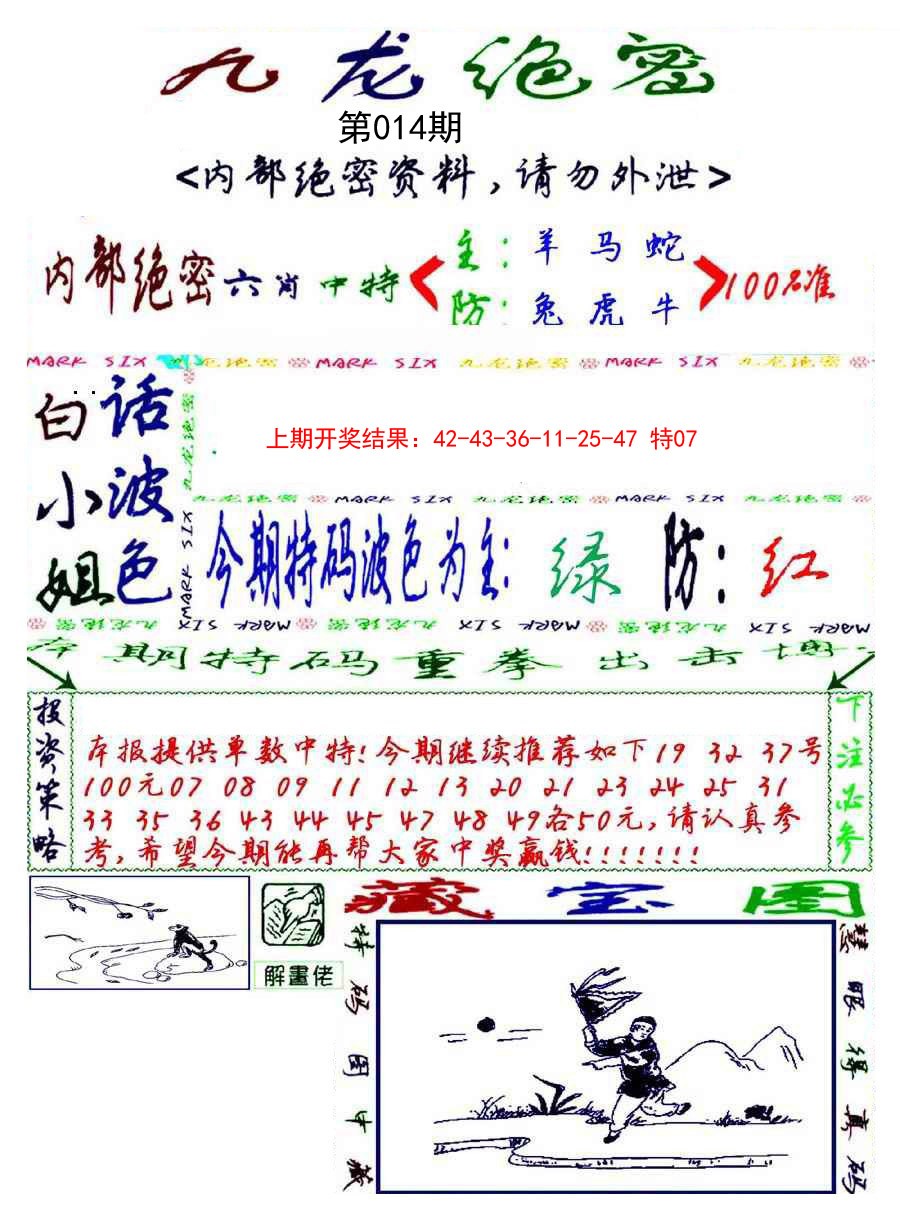 九龙绝密
第014期
<内部绝密资料,请勿外泄>
内部绝密六肖中特
主:羊马蛇
防:兔虎牛
100%准
MARK SIX 九龙绝密 MARK SIX 九龙绝密 MARK SIX 九龙绝密
白话小波姐色
九龙绝密
MARK SIX
上期开奖结果: 42-43-36-11-25-47 特07
九龙绝密 MARK SIX 九龙绝密 MARK SIX 九龙绝密
今期特码波色为主:绿 防:红
九龙绝密 MARK SIX 九龙绝密 MARK SIX 九龙绝密 MARK SIX
本期特码重拳出击
投资策略
本报提供单数中特!今期继续推荐如下19 32 37号
100元07 08 09 11 12 13 20 21 23 24 25 31
33 35 36 43 44 45 47 48 49各50元,请认真参
考,希望今期能再帮大家中奖赢钱!!!!!!!
下注必参
解畫佬
藏宝图
特码图中藏
慧眼得真码